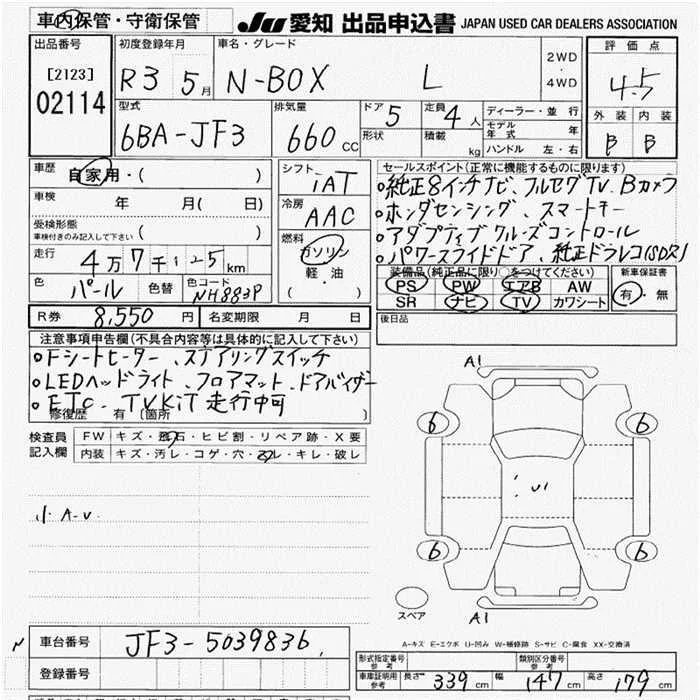 車内保管・守衛保管 JU 愛知 出品申込書 JAPAN USED CAR DEALERS ASSOCIATION
出品番号 初度登録年月 車名・グレード 評価点
[2123] R3 5月 N-BOX L 2WD・4WD 4.5
02114 型式 排気量 ドア 5 定員 4人 ディーラー・並行 外装 内装
6BA-JF3 660cc 形状 積載 kg モデル年式 年 B B
ハンドル 左・右
車歴 自家用・( ) シフト セールスポイント(正常に機能するものに限ります)
iAT 。純正8インチナビ、フルセグTV、Bカメラ
車検 年 月( 日) 冷房 。ホンダセンシング、スマートキー
受検形態 AAC 。アダプティブクルーズコントロール
車検付きのみ記入して下さい ( ) 燃料 。パワースライドドア、純正ドラレコ(SDR)
走行 4万7千125km ガソリン 装備品(純正品に限り○をつけてください) 新車保証書
色 パール 色替 色コード NH883P 軽・油 PS PW エアB AW 有・無
( ) SR ナビ TV カワシート
R券 8,550円 名変期限 月 日 後日品
注意事項申告欄(不具合内容等は具体的に記入して下さい)
。Fシートヒーター、ステアリングスイッチ
。LEDヘッドライト、フロアマット、ドアバイザー
。ETC、TVKiT走行中可
修復歴 有〔箇所 〕
検査員記入欄 FW キズ・飛石・ヒビ割・リペア跡・X要
内装 キズ・汚レ・コゲ・穴・スレ・キレ・破レ
A1
6 6
小A-U U1
6 6
スペア A1
A-キズ E-エクボ U-凹み W-補修跡 S-サビ C-腐食 XX-交換済
車台番号 JF3-5039836
形式指定番号 参考 類別区分番号 参考
登録番号 車庫証明用 参考 長さ 339cm 幅 147cm 高さ 179cm